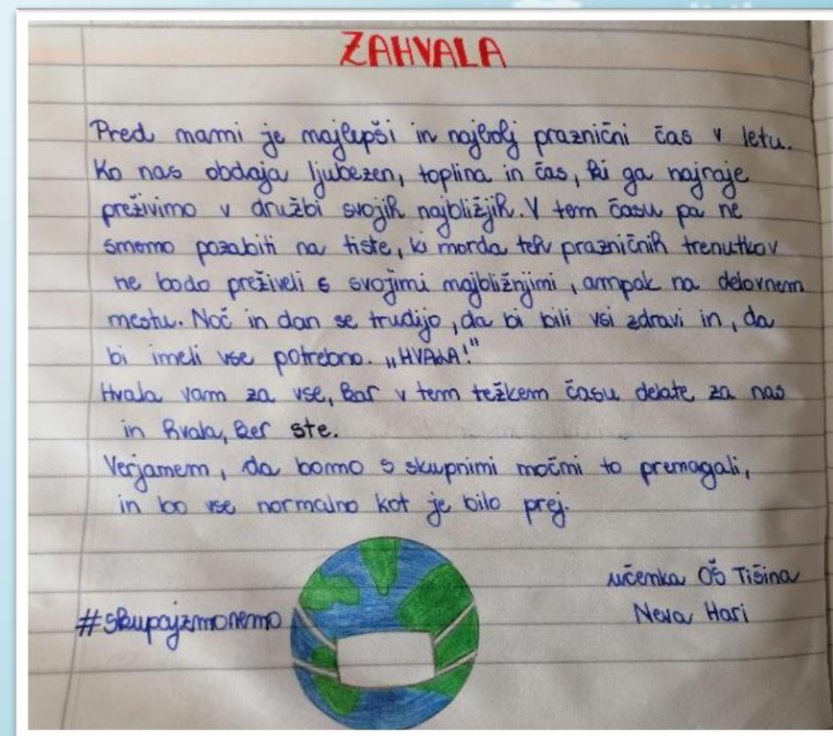 ZAHVALA
Pred nami je najlepši in najbolj praznični čas v letu.
Ko nas obdaja ljubezen, toplina in čas, ki ga najraje
preživimo v družbi svojih najbližjih. V tem času pa ne
smemo pozabiti na tiste, ki morda teh prazničnih trenutkov
ne bodo preživeli s svojimi najbližnjimi, ampak na delovnem
mestu. Noč in dan se trudijo, da bi bili vsi zdravi in, da
bi imeli vse potrebno. „HVALA!"
Hvala vam za vse, kar v tem težkem času delate za nas
in hvala, ker ste.
Verjamem, da bomo s skupnimi močmi to premagali,
in bo vse normalno kot je bilo prej.
učenka OŠ Tišina
#skupajzmoremo
Neva Hari